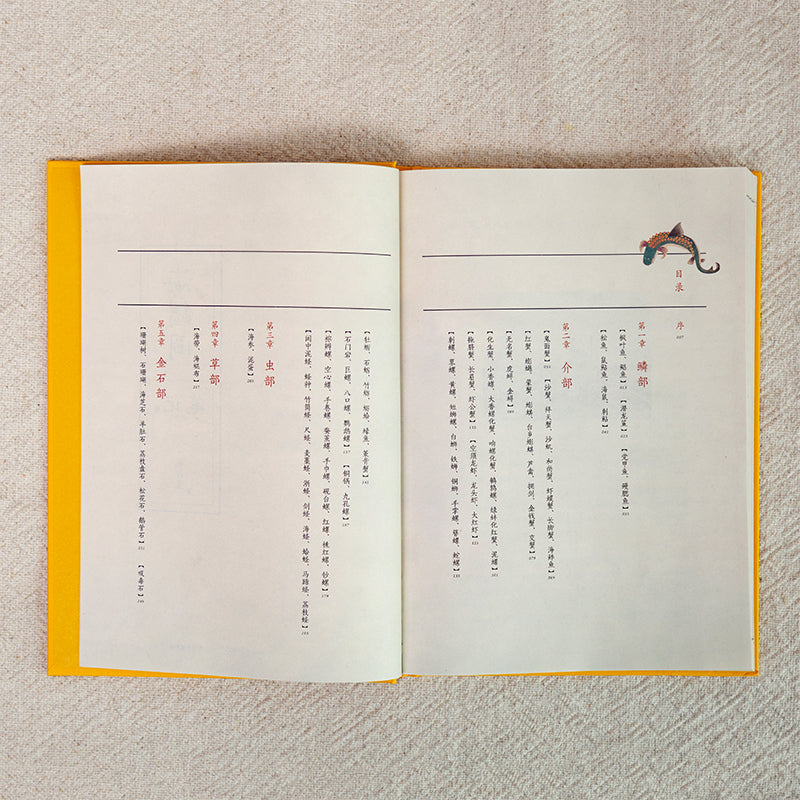 目录
序
007
第一章 鳞部
【枫叶鱼、鲳鱼】013 【潜龙鲨】023 【党甲鱼、鳗腮鱼】033
【松鱼、鼠鲇鱼、海鼠、刺鲇】041
第二章 介部
【鬼面蟹】053 【沙蟹、拜天蟹、沙虮、和尚蟹、虾蟆蟹、长脚蟹、海蜉鱼】069
【红蟹、蝤蛑、蒙蟹、蝤蛑、台乡蝤蛑、芦禽、拥剑、金钱蟹、交蟹】079
【无名蟹、虎蟳、金蟳】089
【化生蟹、小香螺、大香螺化蟹、响螺化蟹、鹌鹑螺、绿蚌化红蟹、泥螺】101
【拖脐蟹、长眉蟹、虾公蟹】【空须龙虾、龙头虾、大红虾】
【刺螺、黄螺、短蛳螺、白蛳、铁蛳、铜蛳、手掌螺、簪螺、蛇螺】
【牡蛎、石蛎、竹蛎、蛎蛤、篆背蟹】
【石门宕、巨螺、八口螺、鹦鹉螺】157 【铜锅、九孔螺】167
【棕辫螺、空心螺、手卷螺、蚕茧螺、手巾螺、砚台螺、红螺、桃红螺、钞螺】179
【闽中泥蛏、蛏种、竹筒蛏、尺蛏、麦藁蛏、浙蛏、剑蛏、海蛏、蛤蛏、马蹄蛏、荔枝蛏】
第三章 虫部
【海参、泥蛋】
第四章 草部
【海带、海裩布】
第五章 金石部
【珊瑚树、石珊瑚、海芝石、羊肚石、荔枝盘石、松花石、鹅管石】 【吸毒石】